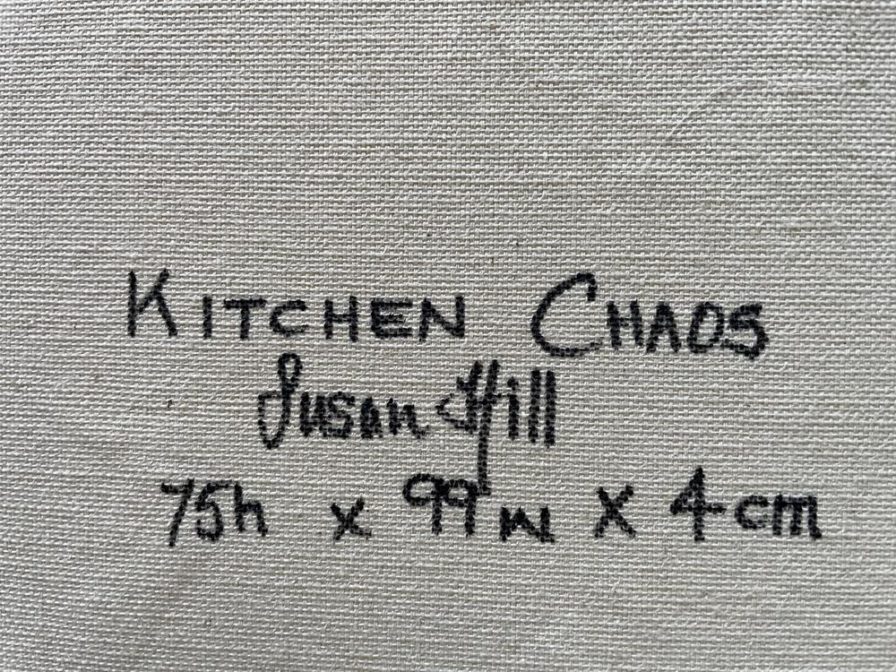 KITCHEN CHAOS
Susan Hill
75h x 99w x 4cm